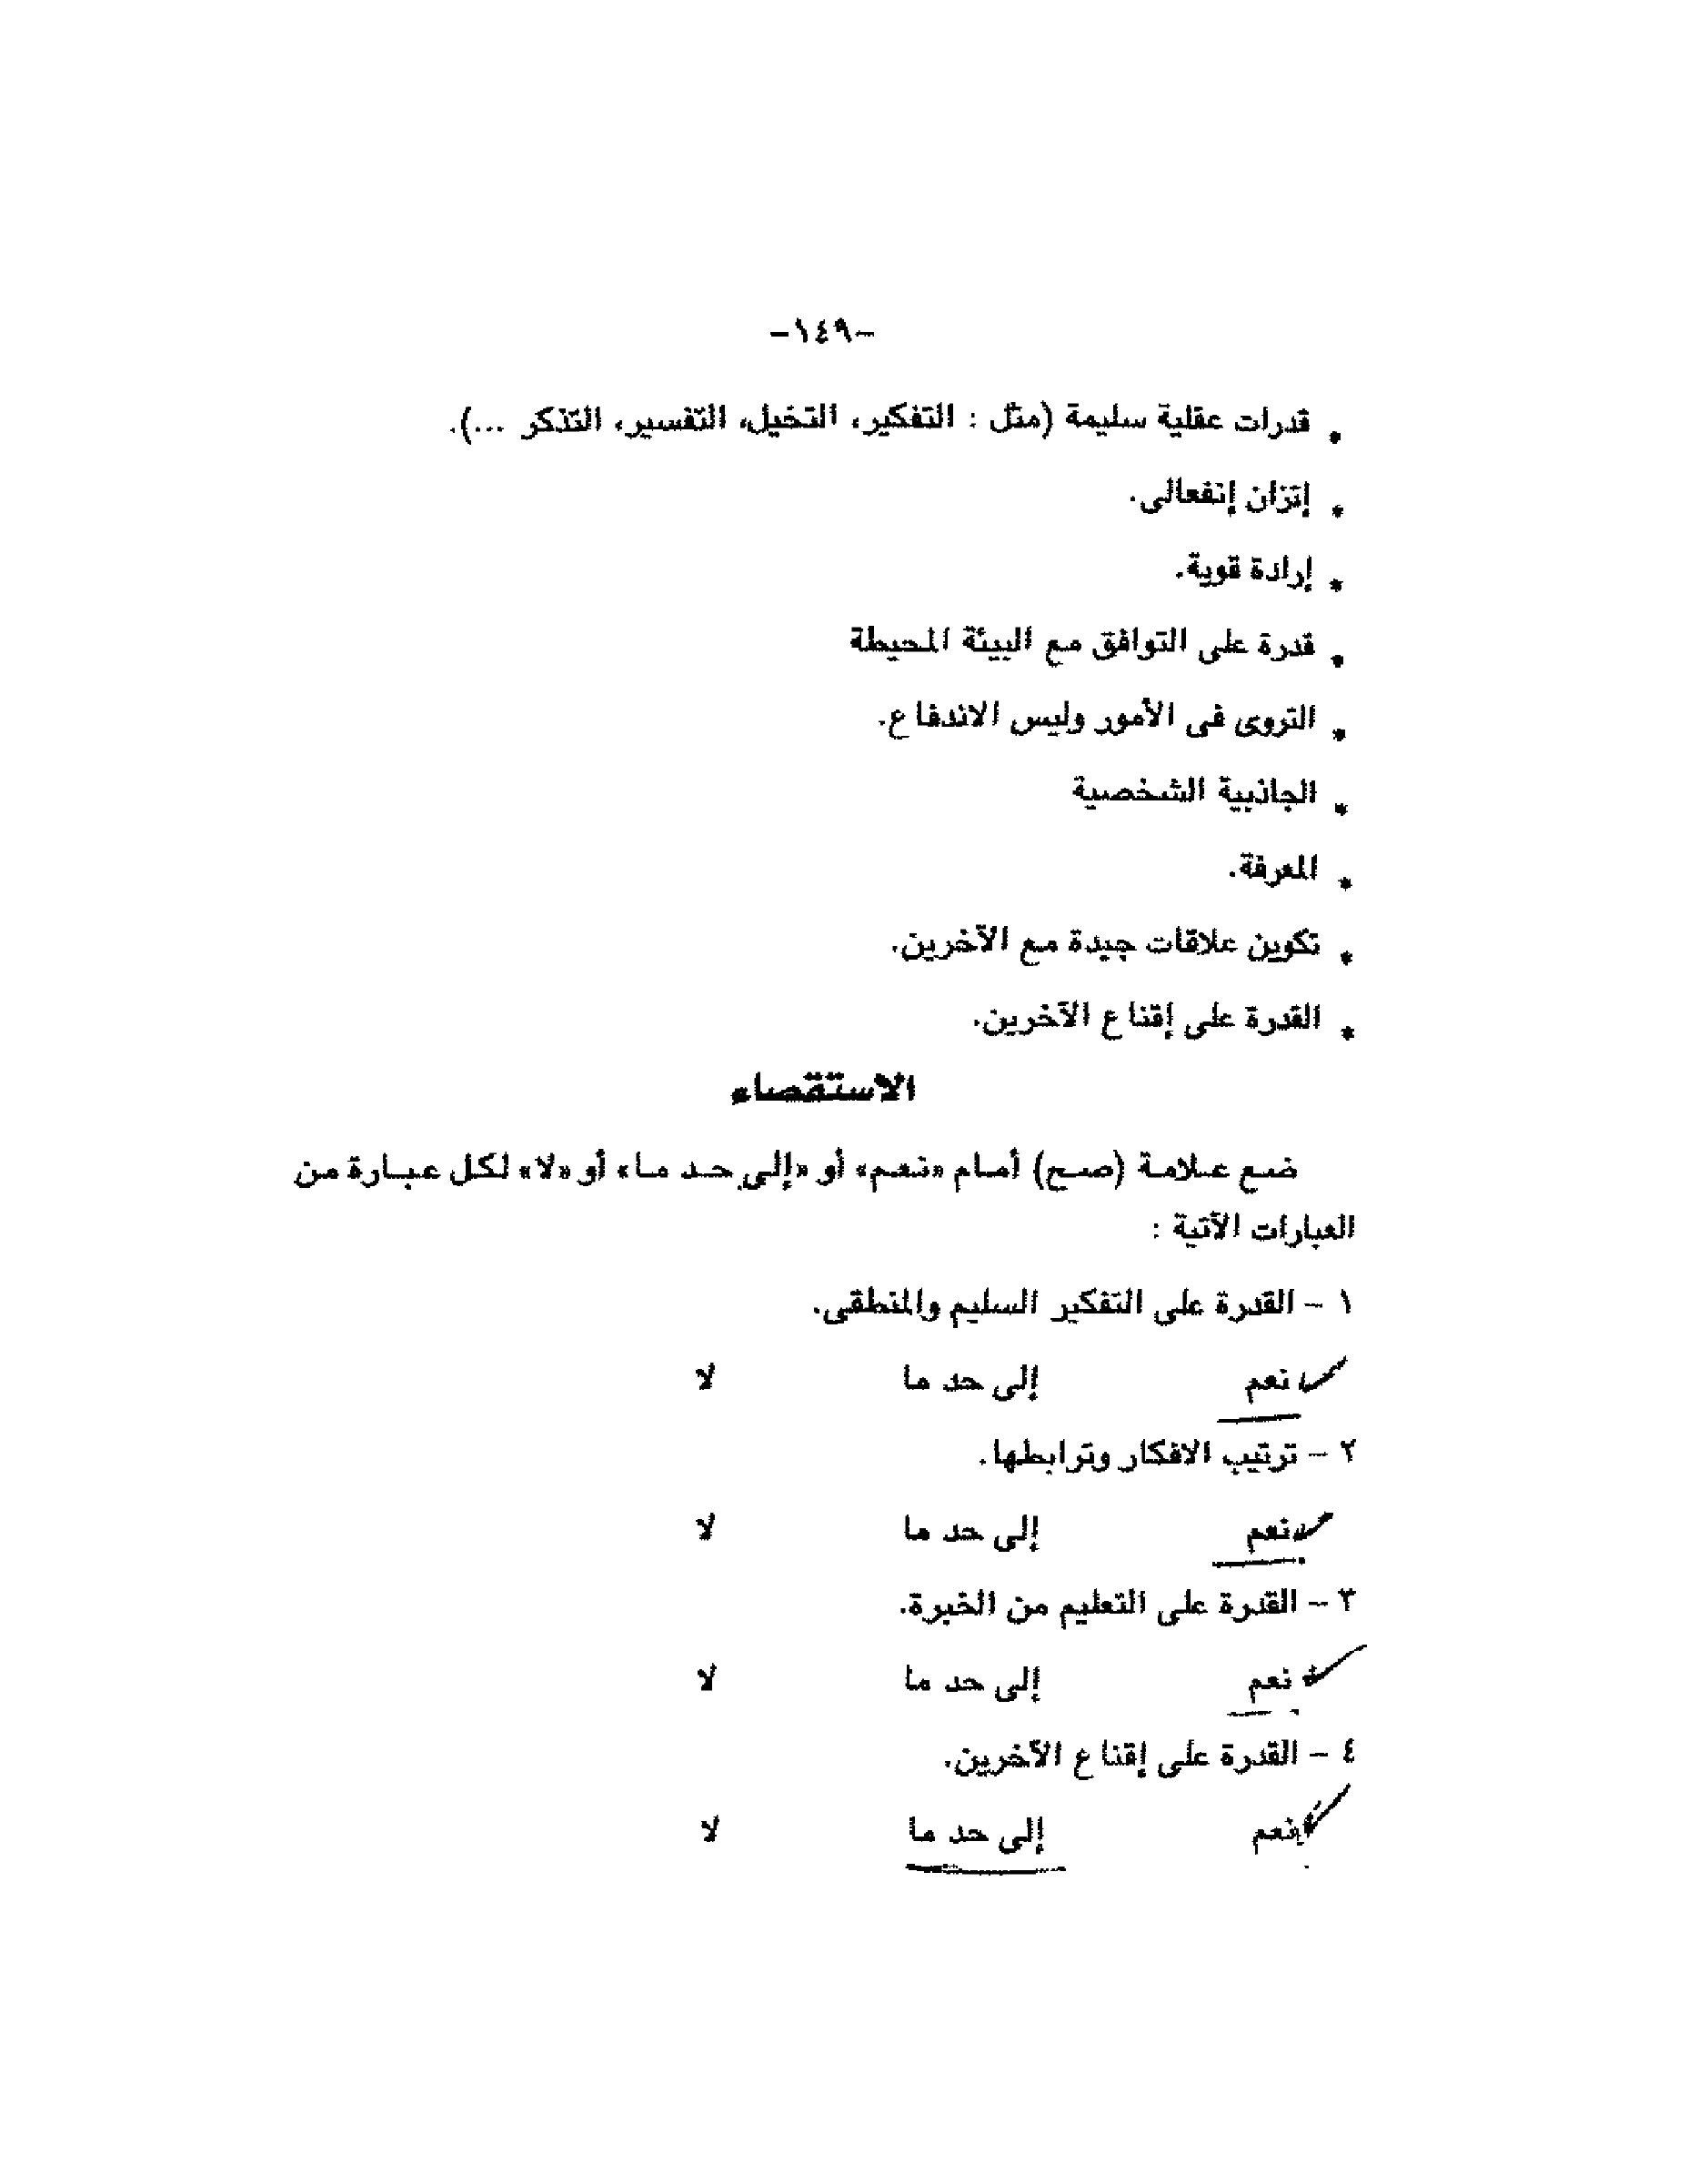 -١٤٩-
* قدرات عقلية سليمة (مثل : التفكير، التخيل، التفسير، التذكر ...).
* إتزان إنفعالى.
* إرادة قوية.
* قدرة على التوافق مع البيئة المحيطة
* التروى فى الأمور وليس الاندفاع.
* الجاذبية الشخصية
* المعرفة.
* تكوين علاقات جيدة مع الآخرين.
* القدرة على إقناع الآخرين.
الاستقصاء
ضع علامة (صح) أمام «نعم» أو «إلى حد ما» أو «لا» لكل عبارة من
العبارات الآتية :
١ - القدرة على التفكير السليم والمنطقى.
✓ نعم إلى حد ما لا
٢ - ترتيب الافكار وترابطها.
✓ نعم إلى حد ما لا
٣ - القدرة على التعليم من الخبرة.
✓ نعم إلى حد ما لا
٤ - القدرة على إقناع الآخرين.
✓ نعم إلى حد ما لا